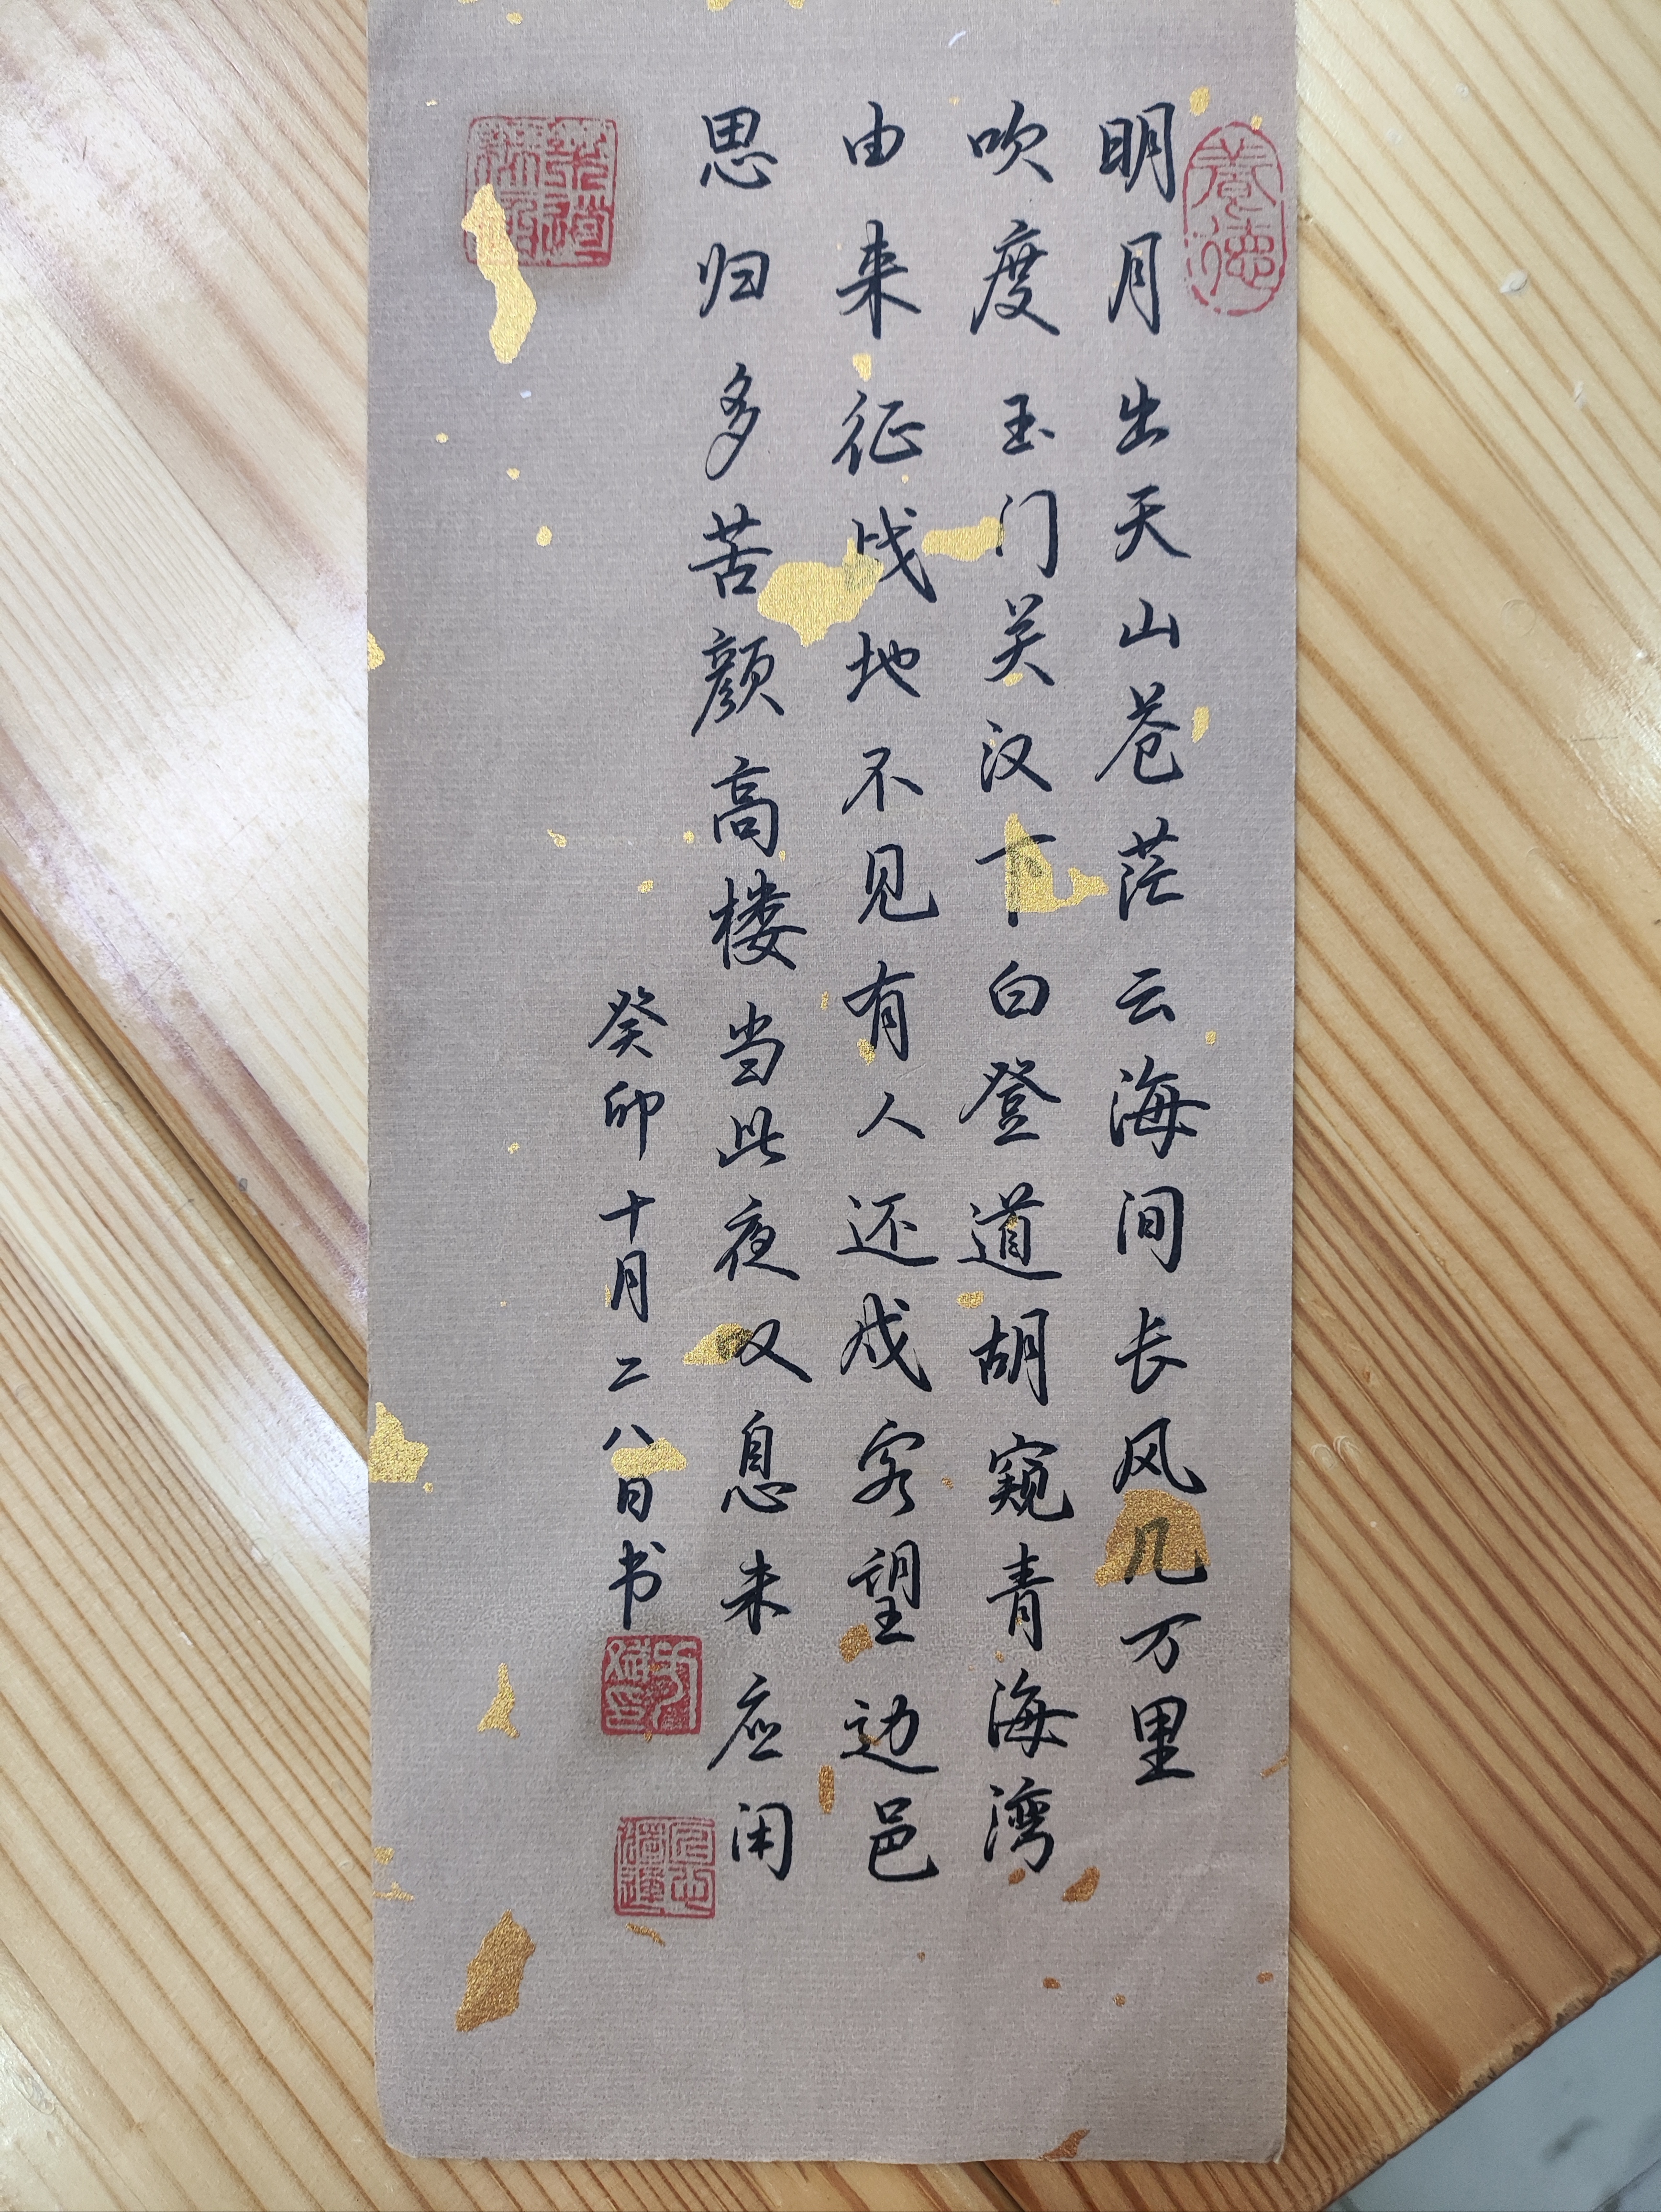 養德
明月出天山苍茫云海间长风几万里
吹度玉门关汉下白登道胡窥青海湾
由来征战地不见有人还戍客望边邑
思归多苦颜高楼当此夜叹息未应闲
癸卯十月二八日书